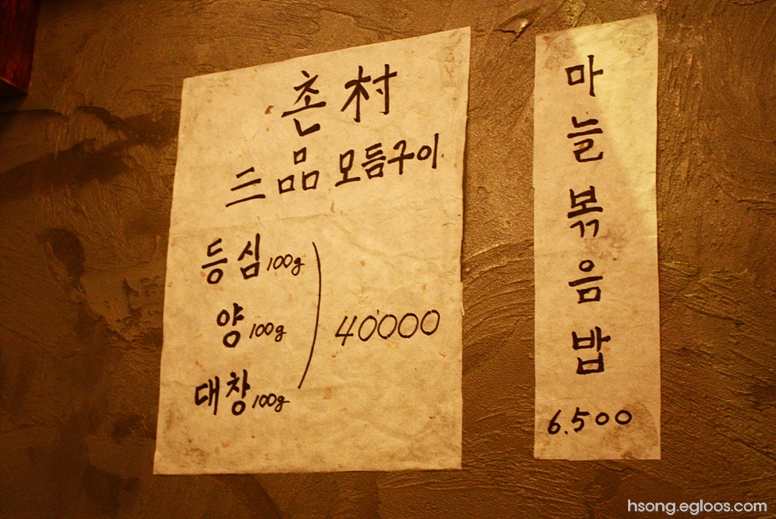 촌 村
三品 모듬구이
등심 100g
양 100g
대창 100g
40000
마늘볶음밥
6.500
hsong.egloos.com